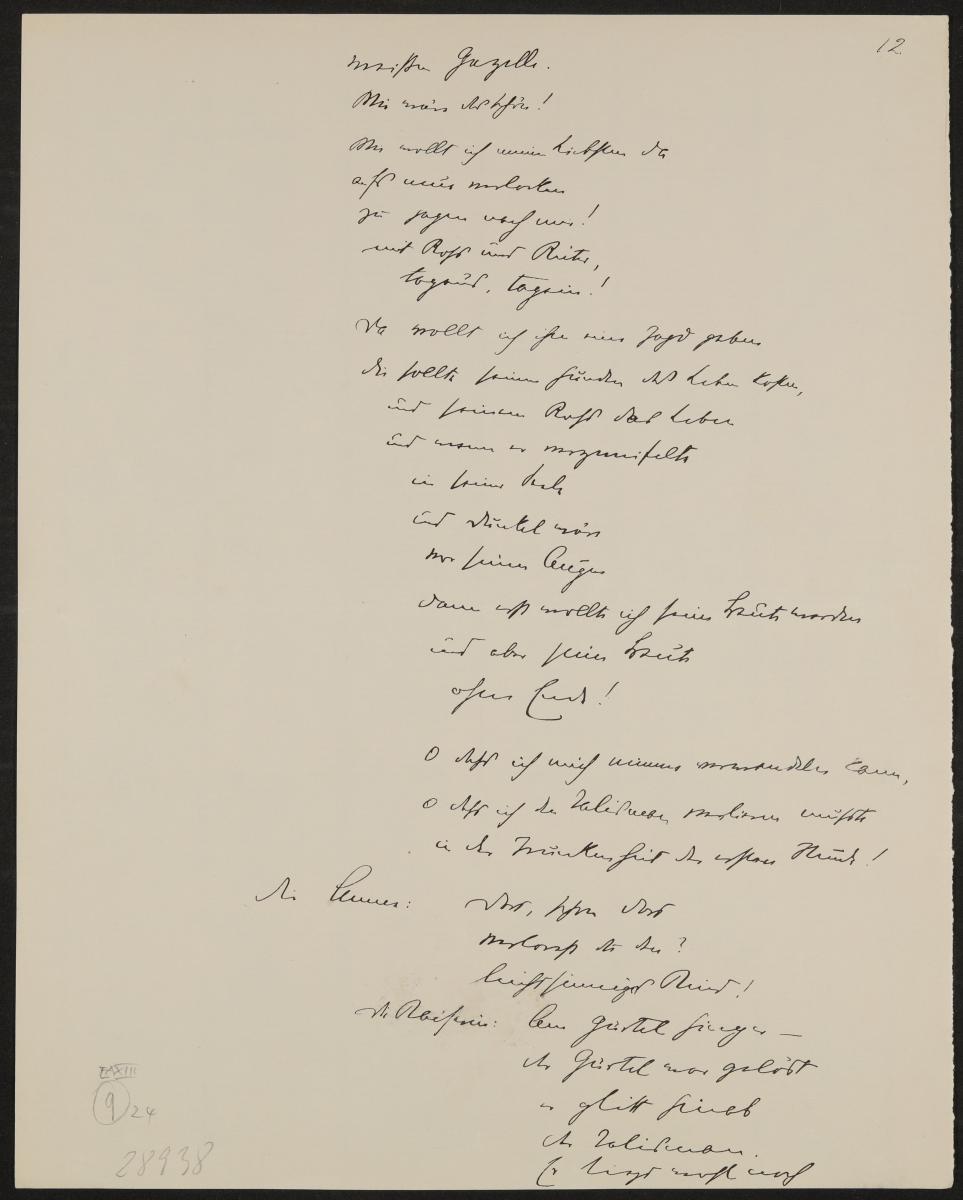 12
weißen Gazelle.
Wie wäre das schön!
Wie wollt ich meinen Liebsten da
aufs neue verlocken
zu jagen nach mir!
mit Ross und Reiter,
tagaus, tagein!
Da wollt ich ihm eine Jagd geben
die sollte seinen Hunden das Leben kosten,
und seinem Ross das Leben
und wenn er verzweifelte
in seiner Seele
und dunkel wäre
vor seinen Augen
dann erst wollte ich seine Beute werden
und aber seine Beute
ohne Ende!
O dass ich mich nimmer verwandeln kann,
O dass ich den Talisman verlieren musste
in der Trunkenheit der ersten Stunde!
die Amme: Dort, schon dort
verlorest du den?
leichtsinniges Kind!
die Kaiserin: Am Gürtel hieng er —
der Gürtel war gelöst
er glitt hinab
der Talisman.
Er liegt wohl noch
9 24
28938